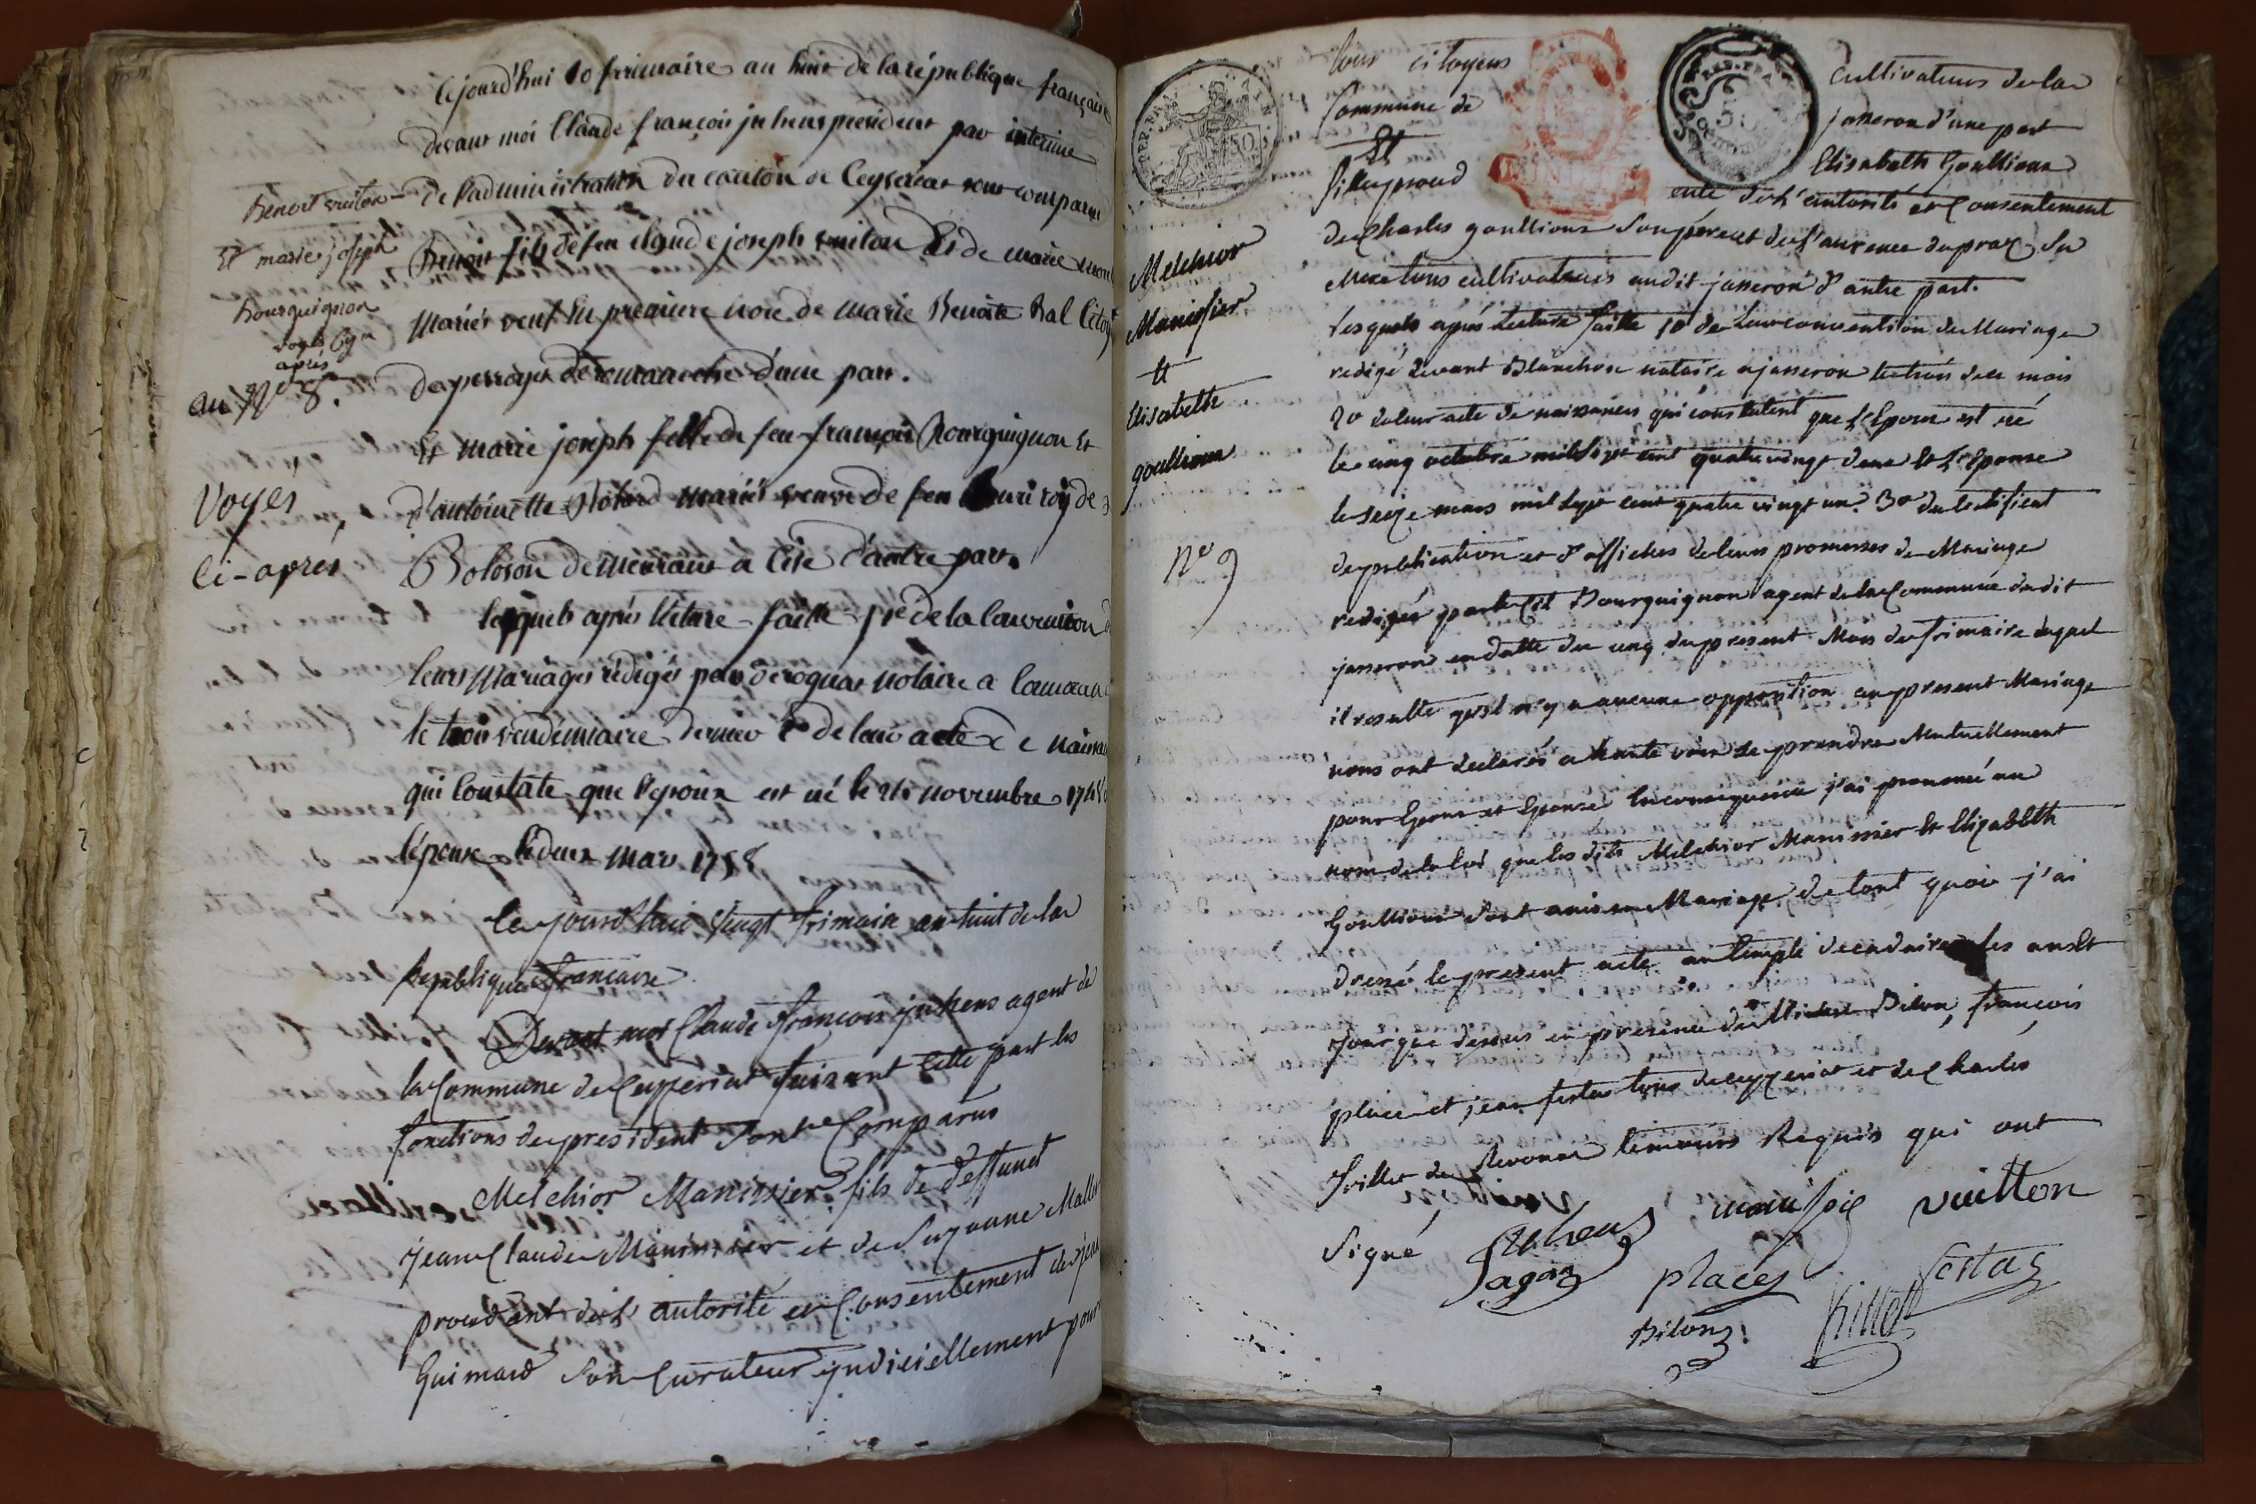 Cejourd'hui 10 frimaire an huit de la république française
devant moi Claude françois juhens président par interime
de l'administration du canton de Ceyseriat sont comparus
Benoit vuiton
Et marie joseph
Bourguignon
voyés cy
après
au Nº 8.
Benoit fils de feu claude joseph vuiton Et de marie
mariés veuf en premiere nore de marie Benoite Bal
de romaneche d'une part.
Et marie joseph fille de feu françois Bourguignon Et
voyés
ci-après
d'antoinette mariés veuve de feu roy de
Boloson demeurant a Cise d'autre part.
lesquels après lecture faitte 1º de la convention de
leurs mariages rédigés par notaire a
le trois vendémiaire dernier 2º de leur acte de naissance
qui Constate que l'epoux est né le 21 novembre
l'épouse le deux mars 1758
Cejourd'huit vingt frimaire an huit de la
République française
Devant moi Claude françois juhens agent de
la Commune de Ceyzeriat faisant cette part les
fonctions de president sont Comparus
Melchior Manissier fils de deffunct
jean Claude Manissier et de Suzanne
procedant de l'autorité et Consentement de jean
Guimard son Curateur judiciellement
tous citoyens cultivateurs de la
Commune de jasseron d'une part
Et Elisabeth Goullioux
fille procedente de l'autorité et Consentement
de Charles goullioux son pére et de laurence duprax sa
Mere tous cultivateurs audit jasseron d'autre part.
Melchior
Manissier
et
Elisabeth
goullioux
Nº 9
Lesquels après Lecture faitte 1º de leur convention de Mariage
redigé devant Blanchon notaire a jasseron le trois de ce mois
2º de leur acte de naissances qui constatent que l'Epoux est né
le cinq octobre mil sept cent quatre vingt deux Et l'Epouse
le seize mars mil sept cent quatre vingt un. 3º du certificat
de publication et d'affiches de leurs promesses de Mariage
redigés par le Cit Bourguignon agent de la Commune dudit
jasseron en datte du cinq du present Mois de frimaire duquel
il resulte qu'il n'y a aucune opposition au present Mariage
nous ont declarés a haute voix se prendre Mutuellement
pour Epoux et Epouse En consequence j'ai prononcé au
nom de la loi que les dits Melchior Manissier Et Elizabeth
Goullioux sont unis en Mariage de tout quoi j'ai
dressé le present acte au temple decadaire les an et
jour que dessus en presence de Bilon, françois
place et jean festas tous de ceyzeriat et de Charles
Trillet de Revonnas temoins Requis qui ont
Signé
Juhens manissié vuitton
Sagon places festas
Bilon trillet